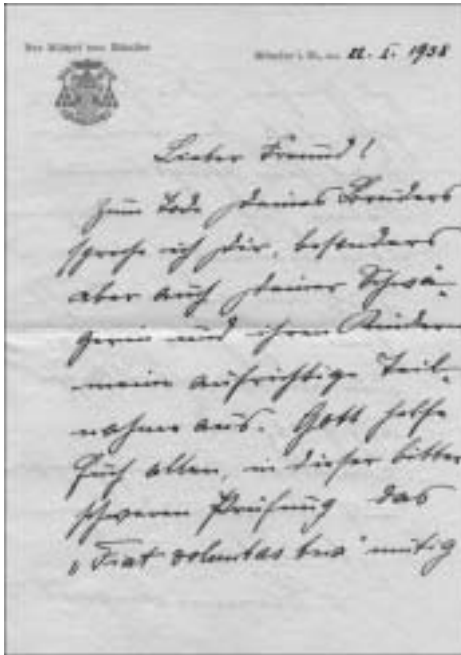 Der Bischof von Münster
Münster i. W., den 22. I. 1938
Lieber Freund!
Zum Tode Deines Bruders
spreche ich Dir, besonders
aber auch Deiner Schwä-
gerin und ihren Kindern
meine aufrichtige Teil-
nahme aus. Gott helfe
Euch allen, in dieser bitter
schweren Prüfung das
„Fiat voluntas tua" mutig